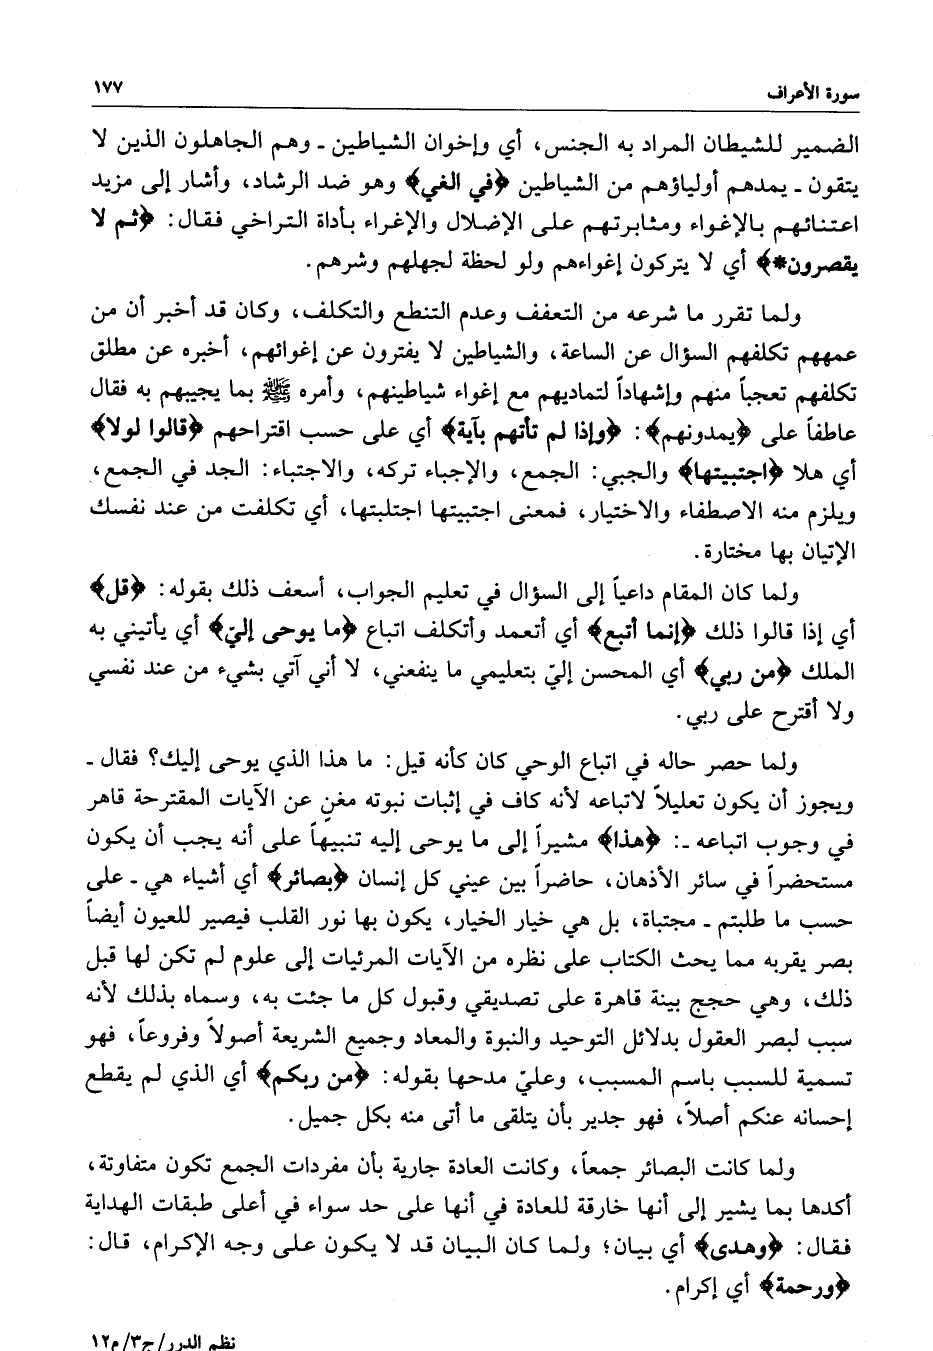 سورة الأعراف ١٧٧
الضمير للشيطان المراد به الجنس، أي وإخوان الشياطين ـ وهم الجاهلون الذين لا
يتقون ـ يمدهم أولياؤهم من الشياطين ﴿في الغي﴾ وهو ضد الرشاد، وأشار إلى مزيد
اعتنائهم بالإغواء ومثابرتهم على الإضلال والإغراء بأداة التراخي فقال: ﴿ثم لا
يقصرون*﴾ أي لا يتركون إغواءهم ولو لحظة لجهلهم وشرهم.
ولما تقرر ما شرعه من التعفف وعدم التنطع والتكلف، وكان قد أخبر أن من
عمههم تكلفهم السؤال عن الساعة، والشياطين لا يفترون عن إغوائهم، أخبره عن مطلق
تكلفهم تعجباً منهم وإشهاداً لتماديهم مع إغواء شياطينهم، وأمره ﷺ بما يجيبهم به فقال
عاطفاً على ﴿يمدونهم﴾: ﴿وإذا لم تأتهم بآية﴾ أي على حسب اقتراحهم ﴿قالوا لولا﴾
أي هلا ﴿اجتبيتها﴾ والجبي: الجمع، والإجباء تركه، والاجتباء: الجد في الجمع،
ويلزم منه الاصطفاء والاختيار، فمعنى اجتبيتها اجتلبتها، أي تكلفت من عند نفسك
الإتيان بها مختارة.
ولما كان المقام داعياً إلى السؤال في تعليم الجواب، أسعف ذلك بقوله: ﴿قل﴾
أي إذا قالوا ذلك ﴿إنما أتبع﴾ أي أتعمد وأتكلف اتباع ﴿ما يوحى إليّ﴾ أي يأتيني به
الملك ﴿من ربي﴾ أي المحسن إليّ بتعليمي ما ينفعني، لا أني آتي بشيء من عند نفسي
ولا أقترح على ربي.
ولما حصر حاله في اتباع الوحي كان كأنه قيل: ما هذا الذي يوحى إليك؟ فقال ـ
ويجوز أن يكون تعليلاً لاتباعه لأنه كاف في إثبات نبوته مغنٍ عن الآيات المقترحة قاهر
في وجوب اتباعه ـ: ﴿هذا﴾ مشيراً إلى ما يوحى إليه تنبيهاً على أنه يجب أن يكون
مستحضراً في سائر الأذهان، حاضراً بين عيني كل إنسان ﴿بصائر﴾ أي أشياء هي ـ على
حسب ما طلبتم ـ مجتباة، بل هي خيار الخيار، يكون بها نور القلب فيصير للعيون أيضاً
بصر يقربه مما يحث الكتاب على نظره من الآيات المرئيات إلى علوم لم تكن لها قبل
ذلك، وهي حجج بينة قاهرة على تصديقي وقبول كل ما جئت به، وسماه بذلك لأنه
سبب لبصر العقول بدلائل التوحيد والنبوة والمعاد وجميع الشريعة أصولاً وفروعاً، فهو
تسمية للسبب باسم المسبب، وعليّ مدحها بقوله: ﴿من ربكم﴾ أي الذي لم يقطع
إحسانه عنكم أصلاً، فهو جدير بأن يتلقى ما أتى منه بكل جميل.
ولما كانت البصائر جمعاً، وكانت العادة جارية بأن مفردات الجمع تكون متفاوتة،
أكدها بما يشير إلى أنها خارقة للعادة في أنها على حد سواء في أعلى طبقات الهداية
فقال: ﴿وهدى﴾ أي بيان؛ ولما كان البيان قد لا يكون على وجه الإكرام، قال:
﴿ورحمة﴾ أي إكرام.
نظم الدرر/ج٣/م١٢